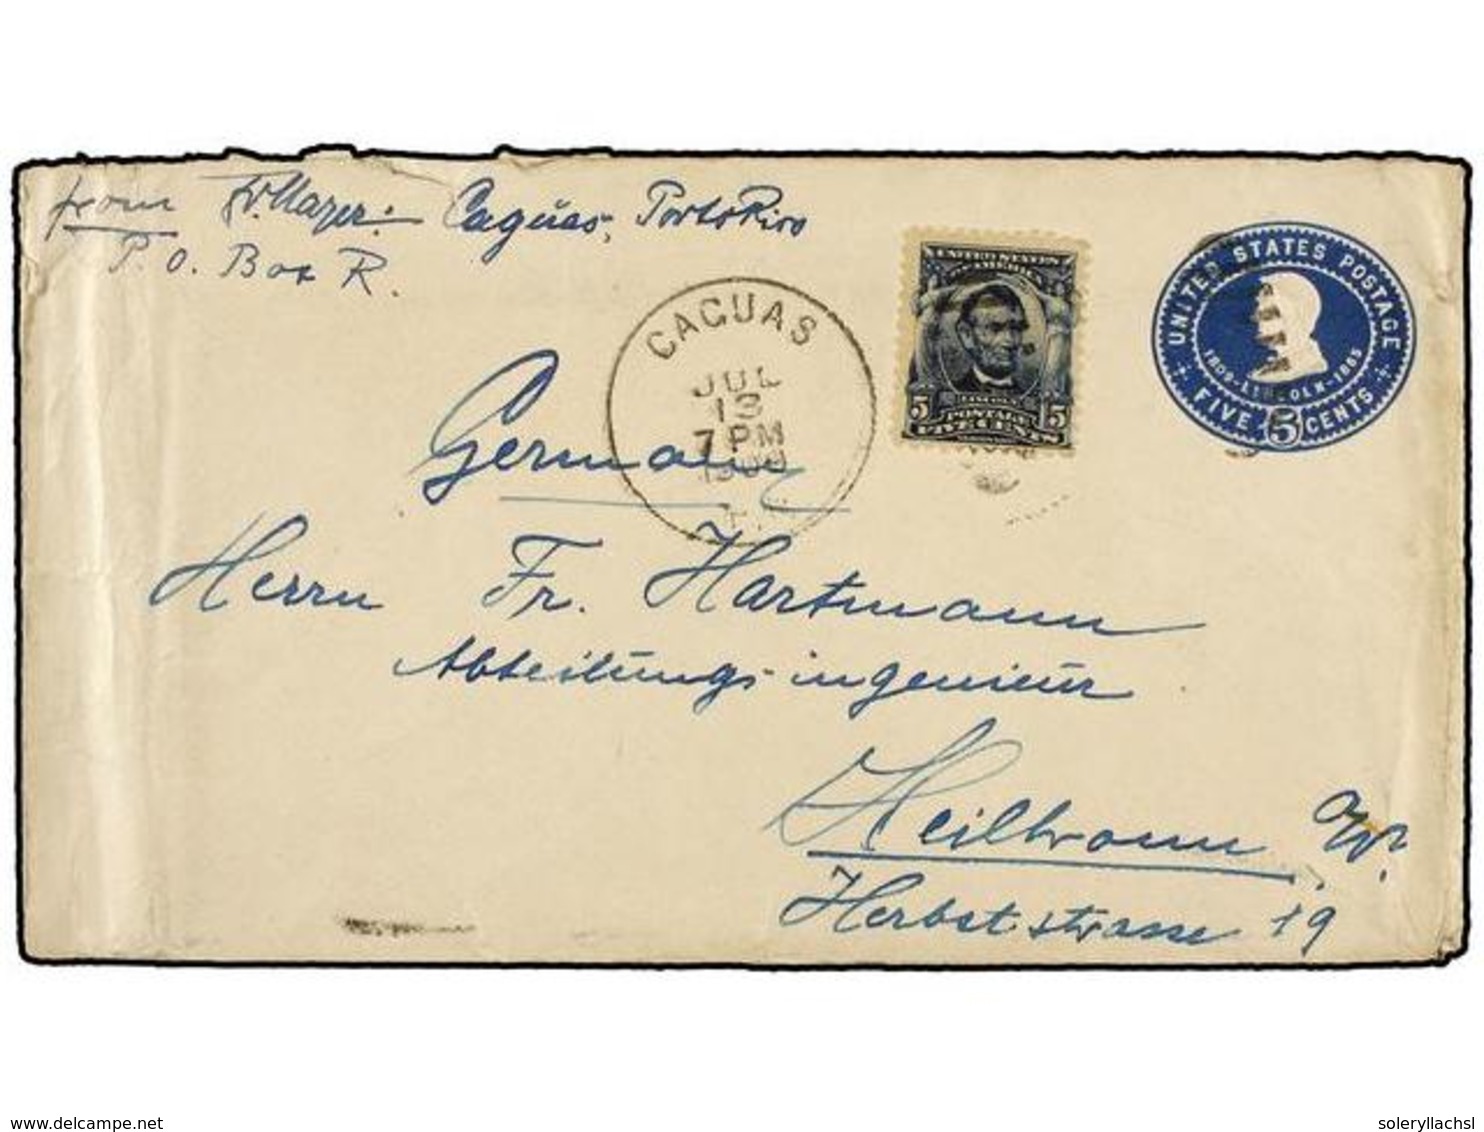 from Fr. Mayer. Caguas, Porto Rico
P. O. Box R.
CAGUAS
JUL
13
7 PM
UNITED STATES
OF AMERICA
5 POSTAGE 5
FIVE CENTS
UNITED STATES POSTAGE
1809-LINCOLN-1865
FIVE 5 CENTS
Germany
Herrn Fr. Hartmann
Abteilungsingenieur
Heilbronn a/N.
Herbststrasse 19
delcampe.net
soleryllachsl